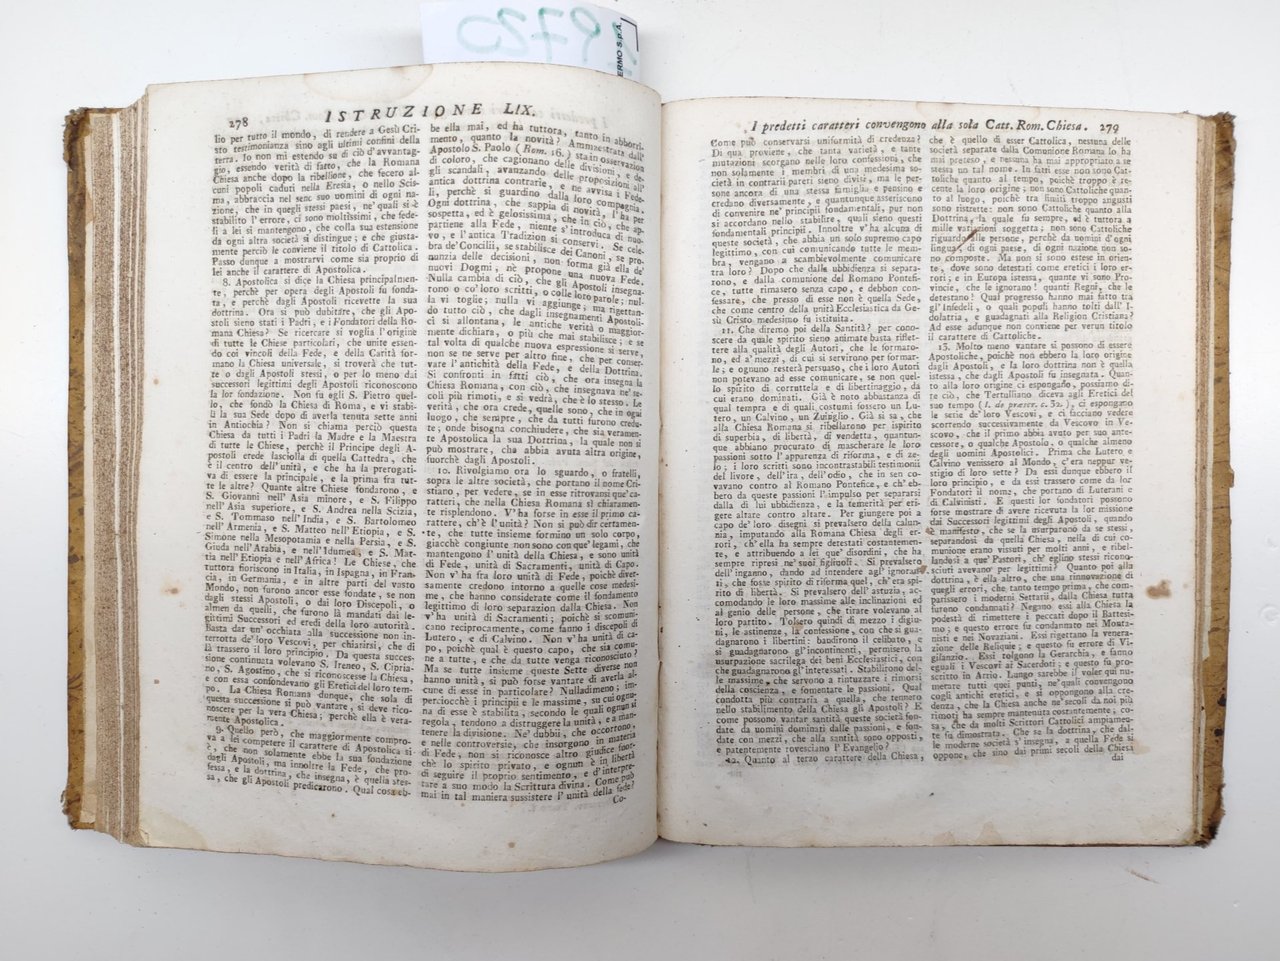 19720
ERMO S.p.A.
278
ISTRUZIONE LIX.
lio per tutto il mondo, di rendere a Gesù Cri-
sto testimonianza sino agli ultimi confini della
terra. Io non mi estendo su di ciò d'avvantag-
gio, essendo verità di fatto, che la Romana
Chiesa anche dopo la ribellione, che fecero al-
cuni popoli caduti nella Eresia, o nello Scis-
ma, abbraccia nel seno suo uomini di ogni na-
zione, che in quegli stessi paesi, ne' quali si è
stabilito l'errore, ci sono moltissimi, che fede-
li a lei si mantengono, che colla sua estensione
da ogni altra società si distingue; e che giusta-
mente perciò le conviene il titolo di Cattolica.
Passo dunque a mostrarvi come sia proprio di
lei anche il carattere di Apostolica.
8. Apostolica si dice la Chiesa principalmen-
te, perchè per opera degli Apostoli fu fonda-
ta, e perchè dagli Apostoli ricevette la sua
dottrina. Ora si può dubitare, che gli Apo-
stoli sieno stati i Padri, e i Fondatori della Ro-
mana Chiesa? Se ricercate il voglia l'origine
di tutte le Chiese particolari, che unite essen-
do coi vincoli della Fede, e della Carità for-
mano la Chiesa universale, si troverà che tut-
te o dagli Apostoli stessi, o per lo meno dai
successori legittimi degli Apostoli riconoscono
la lor fondazione. Non fu egli S. Pietro quel-
lo, che fondò la Chiesa di Roma, e vi stabi-
lì la sua Sede dopo di averla tenuta sette anni
in Antiochia? Non si chiama perciò questa
Chiesa da tutti i Padri la Madre e la Maestra
di tutte le Chiese, perchè il Principe degli A-
postoli erede lasciolla di quella Cattedra, che
è il centro dell'unità, e che ha la prerogati-
va di essere la principale, e la prima fra tut-
te le altre? Quante altre Chiese fondarono, e
S. Giovanni nell'Asia minore, e S. Filippo
nell'Asia superiore, e S. Andrea nella Scizia,
e S. Tommaso nell'India, e S. Bartolomeo
nell'Armenia, e S. Matteo nell'Etiopia, e S.
Simone nella Mesopotamia e nella Persia, e S.
Giuda nell'Arabia, e nell'Idumea, e S. Mat-
tia nell'Etiopia e nell'Africa! Le Chiese, che
tuttora fioriscono in Italia, in Ispagna, in Fran-
cia, in Germania, e in altre parti del vasto
Mondo, non furono ancor esse fondate, se non
dagli stessi Apostoli, o dai loro Discepoli, o
almen da quelli, che furono là mandati dai le-
gittimi Successori ed eredi della loro autorità.
Basta dar un' occhiata alla successione non in-
terrotta de' loro Vescovi, per chiarirsi, che di
là trassero il loro principio. Da questa succes-
sione continuata volevano S. Ireneo, S. Cipria-
no, S. Agostino, che si riconoscesse la Chiesa,
e con essa confondevano gli Eretici del loro tem-
po. La Chiesa Romana dunque, che sola di
questa successione si può vantare, si deve rico-
noscere per la vera Chiesa; perchè ella è vera-
mente Apostolica.
9. Quello però, che maggiormente compro-
va a lei competere il carattere di Apostolica si
è, che non solamente ebbe la sua fondazione
dagli Apostoli, ma inoltre la Fede, che pro-
fessa, e la dottrina, che insegna, è quella stes-
sa, che gli Apostoli predicarono. Qual cosa eb-
be ella mai, ed ha tuttora, tanto in abborri-
mento, quanto la novità? Ammaestrata dall'
Apostolo S. Paolo (Rom. 16.) sta in osservazion
di coloro, che cagionano delle divisioni, e de-
gli scandali, avanzando delle proposizioni all'
antica dottrina contrarie, e ne avvisa i Fede-
li, perchè si guardino dalla loro compagnia.
Ogni dottrina, che sappia di novità, l'ha per
sospetta, ed è gelosissima, che in ciò, che ap-
partiene alla Fede, niente s'introduca di nuo-
vo, e l'antica Tradizion si conservi. Se cele-
bra de' Concilj, se stabilisce dei Canoni, se pro-
nunzia delle decisioni, non forma già ella de'
nuovi Dogmi, nè propone una nuova Fede.
Nulla cambia di ciò, che gli Apostoli insegna-
rono o co' loro scritti, o colle loro parole; nul-
la vi toglie; nulla vi aggiunge; ma rigettan-
do tutto ciò, che dagli insegnamenti Apostoli-
ci si allontana, le antiche verità o maggior-
mente dichiara, o più che mai stabilisce; e se
tal volta di qualche nuova espressione si serve,
non se ne serve per altro fine, che per conser-
vare l'antichità della Fede, e della Dottrina.
Si confronti in fatti ciò, che ora insegna la
Chiesa Romana, con ciò, che insegnava ne' se-
coli più rimoti, e si vedrà, che è lo stesso. Le
verità, che ora crede, quelle sono, che in ogni
luogo, che sempre, che da tutti furono credu-
te; onde bisogna conchiudere, che sia veramen-
te Apostolica la sua Dottrina, la quale non si
può mostrare, che abbia avuta altra origine,
fuorchè dagli Apostoli.
10. Rivolgiamo ora lo sguardo, o fratelli,
sopra le altre società, che portano il nome Cri-
stiano, per vedere, se in esse ritrovansi que' ca-
ratteri, che nella Chiesa Romana sì chiaramen-
te risplendono. V'ha forse in esse il primo ca-
rattere, ch'è l'unità? Non si può dir certamen-
te, che tutte insieme formino un solo corpo,
giacchè congiunte non sono con que' legami, che
mantengono l'unità della Chiesa, e sono unità
di Fede, unità di Sacramenti, unità di Capo.
Non v'ha fra loro unità di Fede, poichè diver-
samente credono intorno a quelle cose medesi-
me, che hanno considerate come il fondamento
legittimo di loro separazion dalla Chiesa. Non
v'ha unità di Sacramenti; poichè si scomuni-
cano reciprocamente, come fanno i discepoli di
Lutero, e di Calvino. Non v'ha unità di ca-
po, poichè qual è questo capo, che sia comu-
ne a tutte, e che da tutte venga riconosciuto?
Ma se tutte insieme queste Sette diverse non
hanno unità, si può forse vantare di averla al-
cune di esse in particolare? Nulladimeno; im-
perciocchè i principi e le massime, su cui ognu-
na di esse è stabilita, secondo le quali ognun si
regola, tendono a distruggere la unità, e a man-
tenere la divisione. Ne' dubbii, che occorrono,
e nelle controversie, che insorgono in materia
di Fede, non si riconosce altro giudice fuor-
chè lo spirito privato, e ognun è in libertà
di seguire il proprio sentimento, e d'interpre-
tare a suo modo la Scrittura divina. Come può
mai in tal maniera sussistere l'unità della fede?
Co-
I predetti caratteri convengono alla sola Catt. Rom. Chiesa. 279
Come può conservarsi uniformità di credenza?
Di qua proviene, che tanta varietà, e tante
mutazioni scorgansi nelle loro confessioni, che
non solamente i membri di una medesima so-
cietà in contrarii pareri sieno divisi, ma le per-
sone ancora di una stessa famiglia e pensino e
credano diversamente, e quantunque asseriscono
di convenire ne' principii fondamentali, pur non
si accordano nello stabilire, quali sieno questi
fondamentali principii. Innoltre v'ha alcuna di
queste società, che abbia un solo supremo capo
legittimo, con cui comunicando tutte le mem-
bra, vengano a scambievolmente comunicare
tra loro? Dopo che dalla ubbidienza si separa-
rono, e dalla comunione del Romano Pontefi-
ce, tutte rimasero senza capo, e debbon con-
fessare, che presso di esse non è quella Sede,
che come centro della unità Ecclesiastica da Ge-
sù Cristo medesimo fu istituita.
11. Che diremo poi della Santità? per cono-
scere da quale spirito sieno animate basta riflet-
tere alla qualità degli Autori, che le formaro-
no, ed a' mezzi, di cui si servirono per formar-
le; e ognuno resterà persuaso, che i loro Autori
non potevano ad esse comunicare, se non quel-
lo spirito di corruttela e di libertinaggio, da
cui erano dominati. Già è noto abbastanza di
qual tempra e di quali costumi fossero un Lu-
tero, un Calvino, un Zuinglio. Già si sa, che
alla Chiesa Romana si ribellarono per ispirito
di superbia, di libertà, di vendetta, quantun-
que abbiano procurato di mascherare le loro
passioni sotto l'apparenza di riforma, e di ze-
lo; i loro scritti sono incontrastabili testimonii
del livore, dell'ira, dell'odio, che in sen co-
vavano contro al Romano Pontefice, e ch'eb-
bero da queste passioni l'impulso per separarsi
dalla di lui ubbidienza, e la temerità per eri-
gere altare contro altare. Per giungere poi a
capo de' loro disegni si prevalsero della calun-
nia, imputando alla Romana Chiesa degli er-
rori, ch'ella ha sempre detestati costantemen-
te, e attribuendo a lei que' disordini, che ha
sempre ripresi ne' suoi figliuoli. Si prevalsero
dell'inganno, dando ad intendere agl'ignoran-
ti, che fosse spirito di riforma quel, ch'era spi-
rito di libertà. Si prevalsero dell'astuzia, ac-
comodando le loro massime alle inclinazioni ed
al genio delle persone, che tirare volevano al
loro partito. Tolsero quindi di mezzo i digiu-
ni, le astinenze, la confessione, con che si gua-
dagnarono i libertini: bandirono il celibato, e
si guadagnarono gl'incontinenti, permisero la
usurpazione sacrilega dei beni Ecclesiastici, con
che guadagnarono gl'interessati. Stabilirono del-
le massime, che servono a rintuzzare i rimorsi
della coscienza, e fomentare le passioni. Qual
condotta più contraria a quella, che tennero
nello stabilimento della Chiesa gli Apostoli? E
come possono vantar santità queste società fon-
date da uomini dominati dalle passioni, e fon-
date con mezzi, che alla santità sono opposti,
e patentemente rovesciano l'Evangelio?
12. Quanto al terzo carattere della Chiesa,
che è quello di esser Cattolica, nessuna delle
società separate dalla Comunione Romana lo ha
mai preteso, e nessuna ha mai appropriato a se
stessa un tal nome. In fatti esse non sono Cat-
toliche quanto al tempo, poichè troppo è re-
cente la loro origine; non sono Cattoliche quan-
to al luogo, poichè tra finiti troppo angusti
sono ristrette: non sono Cattoliche quanto alla
Dottrina, la quale fu sempre, ed è tuttora a
mille variazioni soggetta; non sono Cattoliche
riguardo alle persone, perchè da uomini d'ogni
lingua, di ogni stato, di ogni nazione non so-
no composte. Ma non si sono estese in orien-
te, dove sono detestati come eretici i loro er-
rori; e in Europa istessa, quante vi sono Pro-
vincie, che le ignorano! quanti Regni, che le
detestano! Qual progresso hanno mai fatto tra
gl'Infedeli, o quali popoli hanno tolti dall'I-
dolatria, e guadagnati alla Religion Cristiana?
Ad esse adunque non conviene per verun titolo
il carattere di Cattoliche.
13. Molto meno vantare si possono di essere
Apostoliche, poichè non ebbero la loro origine
dagli Apostoli, e la loro dottrina non è quella
stessa, che dagli Apostoli fu insegnata. Quan-
to alla loro origine ci espongano, possiamo di-
re ciò, che Tertulliano diceva agli Eretici del
suo tempo (l. de præscr. c. 32.), ci espongano
la serie de' loro Vescovi, e ci facciano vedere
scorrendo successivamente da Vescovo in Ve-
scovo, che il primo abbia avuto per suo ante-
cessore, o qualche Apostolo, o qualche almeno
degli uomini Apostolici. Prima che Lutero e
Calvino venissero al Mondo, c'era neppur ve-
stigio di loro sette? Da essi dunque ebbero il
loro principio, e da essi trassero come da lor
Fondatori il nome, che portan di Luterani e
di Calvinisti. E questi lor fondatori possono
forse mostrare di avere ricevuta la lor missione
dai Successori legittimi degli Apostoli, quando
è manifesto, che se la usurparono da se stessi,
separandosi da quella Chiesa, nella di cui co-
munione erano vissuti per molti anni, e ribel-
landosi a que' Pastori, ch'eglino stessi ricono-
sciuti avevano per legittimi? Quanto poi alla
dottrina, è ella altro, che una rinnovazione di
quegli errori, che tanto tempo prima, che com-
parissero i moderni Settarii, dalla Chiesa tutta
furono condannati? Negano essi alla Chiesa la
podestà di rimettere i peccati dopo il Battesi-
mo; e questo errore fu condannato nei Monta-
nisti e nei Novaziani. Essi rigettano la venera-
zione delle Reliquie; e questo fu errore di Vi-
gilanzio. Essi tolgono la Gerarchia, e fanno
eguali i Vescovi ai Sacerdoti; e questo fu pro-
scritto in Arrio. Lungo sarebbe il voler qui nu-
merare tutti quei punti, ne' quali convengono
cogli antichi eretici, e si oppongono alla cre-
denza, che la Chiesa anche ne' secoli da noi più
rimoti ha sempre mantenuta costantemente; co-
sa, che da molti Scrittori Cattolici ampiamen-
te fu dimostrata. Che se la dottrina, che dal-
le moderne società s'insegna, a quella Fede si
oppone, che sino dai primi secoli della Chiesa
dai